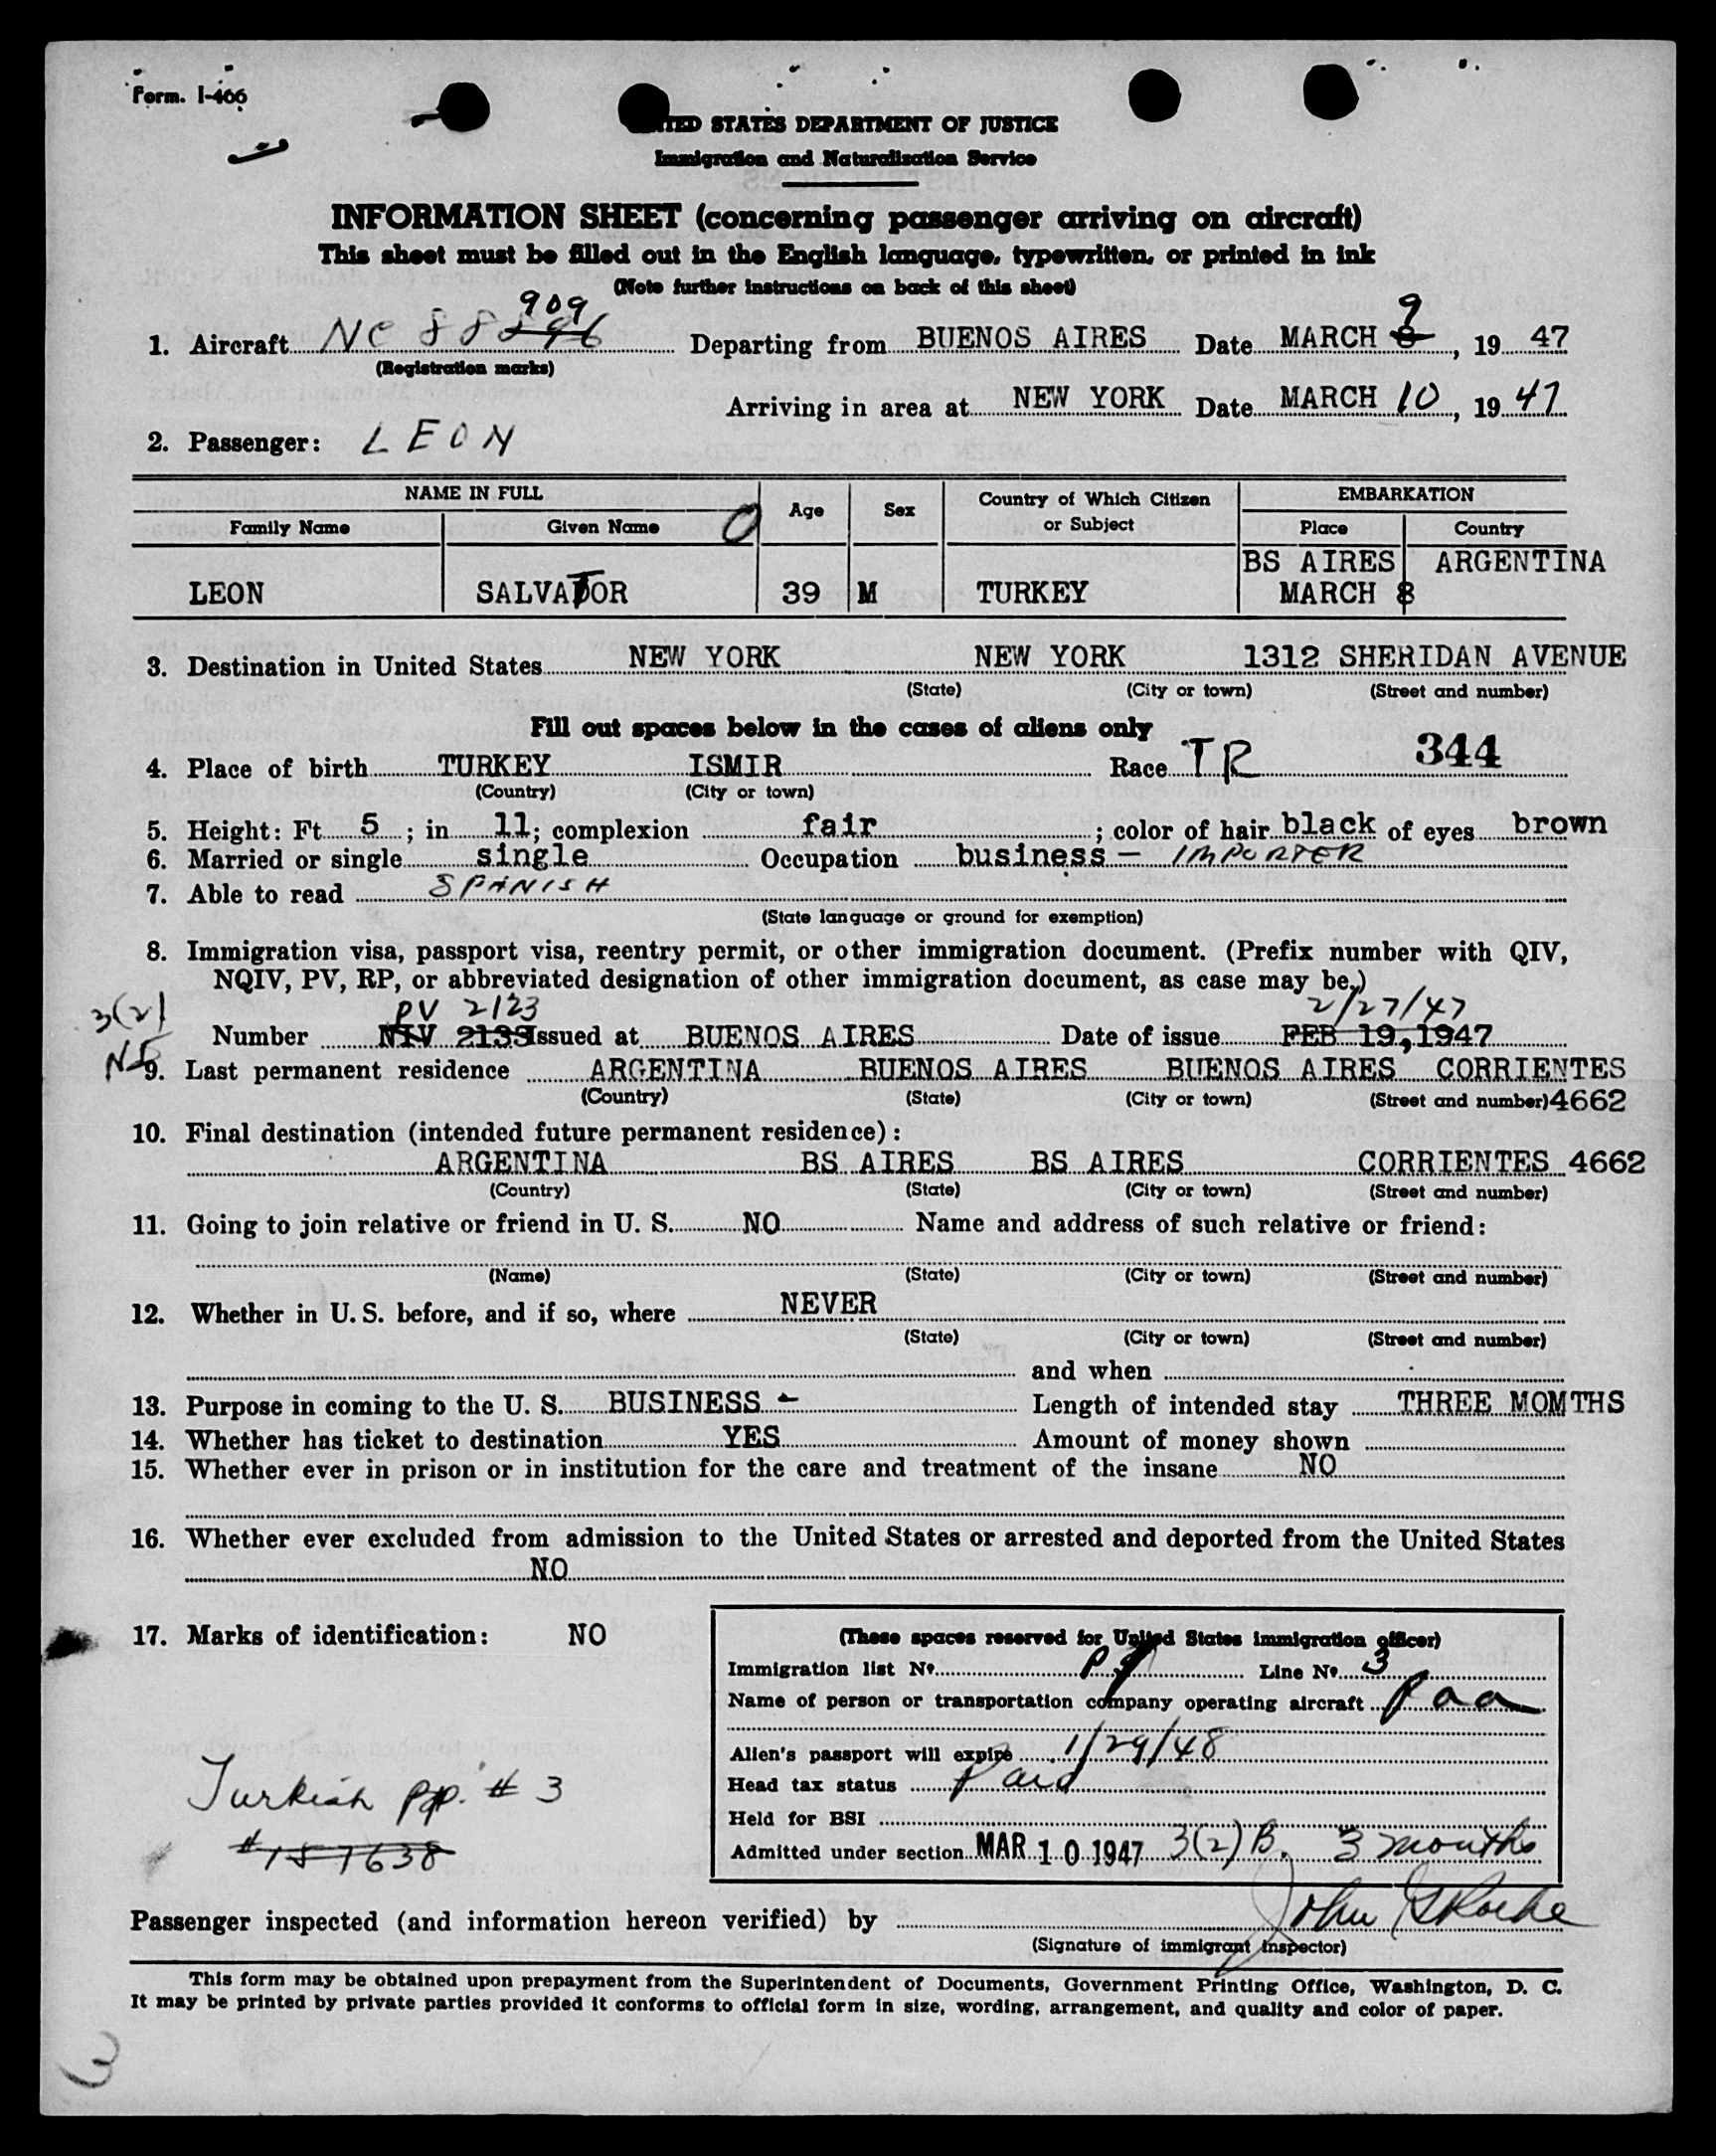 Form. I-466
UNITED STATES DEPARTMENT OF JUSTICE
Immigration and Naturalization Service
INFORMATION SHEET (concerning passenger arriving on aircraft)
This sheet must be filled out in the English language, typewritten, or printed in ink
(Note further instructions on back of this sheet)
909
1. Aircraft NC 88896 Departing from BUENOS AIRES Date MARCH 8 9, 19 47
(Registration marks)
Arriving in area at NEW YORK Date MARCH 10, 19 47
2. Passenger: LEON
NAME IN FULL Age Sex Country of Which Citizen or Subject EMBARKATION
Family Name Given Name Place Country
BS AIRES ARGENTINA
LEON SALVATOR 39 M TURKEY MARCH 8
3. Destination in United States NEW YORK NEW YORK 1312 SHERIDAN AVENUE
(State) (City or town) (Street and number)
Fill out spaces below in the cases of aliens only
344
4. Place of birth TURKEY ISMIR Race TR
(Country) (City or town)
5. Height: Ft 5 ; in 11; complexion fair ; color of hair black of eyes brown
6. Married or single single Occupation business — IMPORTER
7. Able to read SPANISH
(State language or ground for exemption)
8. Immigration visa, passport visa, reentry permit, or other immigration document. (Prefix number with QIV,
NQIV, PV, RP, or abbreviated designation of other immigration document, as case may be.)
3(2) PV 2123 2/27/47
Number NIV 2133 Issued at BUENOS AIRES Date of issue FEB 19,1947
9. Last permanent residence ARGENTINA BUENOS AIRES BUENOS AIRES CORRIENTES
(Country) (State) (City or town) (Street and number) 4662
10. Final destination (intended future permanent residence):
ARGENTINA BS AIRES BS AIRES CORRIENTES 4662
(Country) (State) (City or town) (Street and number)
11. Going to join relative or friend in U. S. NO Name and address of such relative or friend:
(Name) (State) (City or town) (Street and number)
12. Whether in U. S. before, and if so, where NEVER
(State) (City or town) (Street and number)
and when
13. Purpose in coming to the U. S. BUSINESS - Length of intended stay THREE MOMTHS
14. Whether has ticket to destination YES Amount of money shown
15. Whether ever in prison or in institution for the care and treatment of the insane NO
16. Whether ever excluded from admission to the United States or arrested and deported from the United States
NO
17. Marks of identification: NO
(These spaces reserved for United States immigration officer)
Immigration list No. Line No. 3
Name of person or transportation company operating aircraft paa
Alien's passport will expire 1/29/48
Head tax status Paid
Held for BSI
Admitted under section MAR 10 1947 3(2)B. 3 months
Turkish pp. # 3
#157638
Passenger inspected (and information hereon verified) by John
(Signature of immigrant inspector)
This form may be obtained upon prepayment from the Superintendent of Documents, Government Printing Office, Washington, D. C.
It may be printed by private parties provided it conforms to official form in size, wording, arrangement, and quality and color of paper.
3